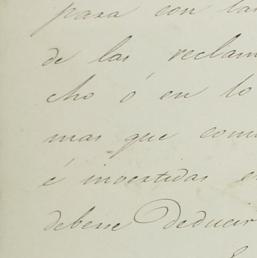 para con las
de las reclam
cho ó en lo
mas que comu
é invertidas e
deberse deducir